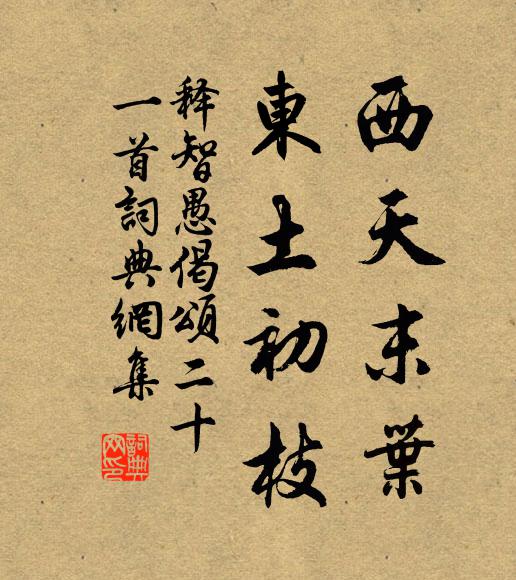 西天末葉
東土初枝
释智愚偈頌二十
一首詞典網集
詞典網印